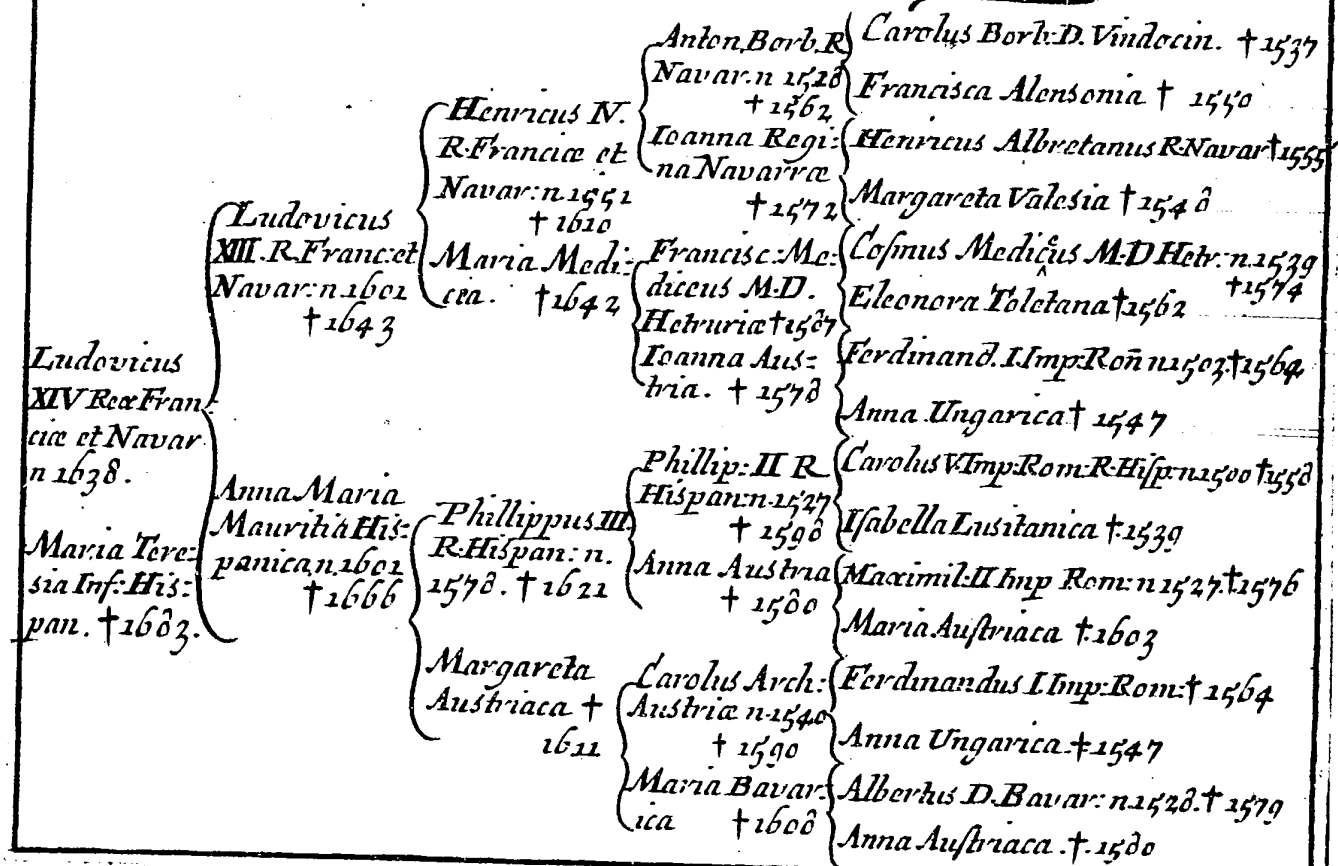 Ludovicus
XIV Rex Fran-
ciæ et Navar.
n 1638.
Maria Tere-
sia Inf: His:
pan. †1683.
Ludovicus
XIII. R. Franc: et
Navar: n. 1601
†1643
Anna Maria
Mauritia His-
panica n. 1601
†1666
Henricus IV.
R. Franciæ et
Navar: n. 1551
†1610
Maria Medi:
cea. †1642
Phillippus III.
R. Hispan: n.
1578. †1621
Margareta
Austriaca †
1611
Anton. Borb. R
Navar. n 1518
†1562
Ioanna Regi:
na Navarræ
†1572
Francisc: Me:
diceus M.D.
Hetruriæ †1587
Ioanna Aus:
tria. †1578
Phillip: II R
Hispan: n. 1527
†1598
Anna Austria
†1580
Carolus Arch:
Austriæ n. 1540
†1590
Maria Bavar:
ica †1608
Carolus Borb: D. Vindocin. †1537
Francisca Alensonia † 1550
Henricus Albretanus R. Navar †1555
Margareta Valesia †1548
Cosmus Mediceus M.D Hetr: n. 1539
†1574
Eleonora Toletana †1562
Ferdinand. I. Imp: Rom̄ n 1503. †1564
Anna Ungarica † 1547
Carolus V. Imp: Rom: R. Hisp: n 1500 †1558
Isabella Lusitanica †. 1539
Maximil: II Imp Rom: n 1527. †1576
Maria Austriaca †. 1603
Ferdinandus I Imp: Rom: † 1564
Anna Ungarica. †. 1547
Albertus D. Bavar: n. 1528. † 1579
Anna Austriaca. †. 1580